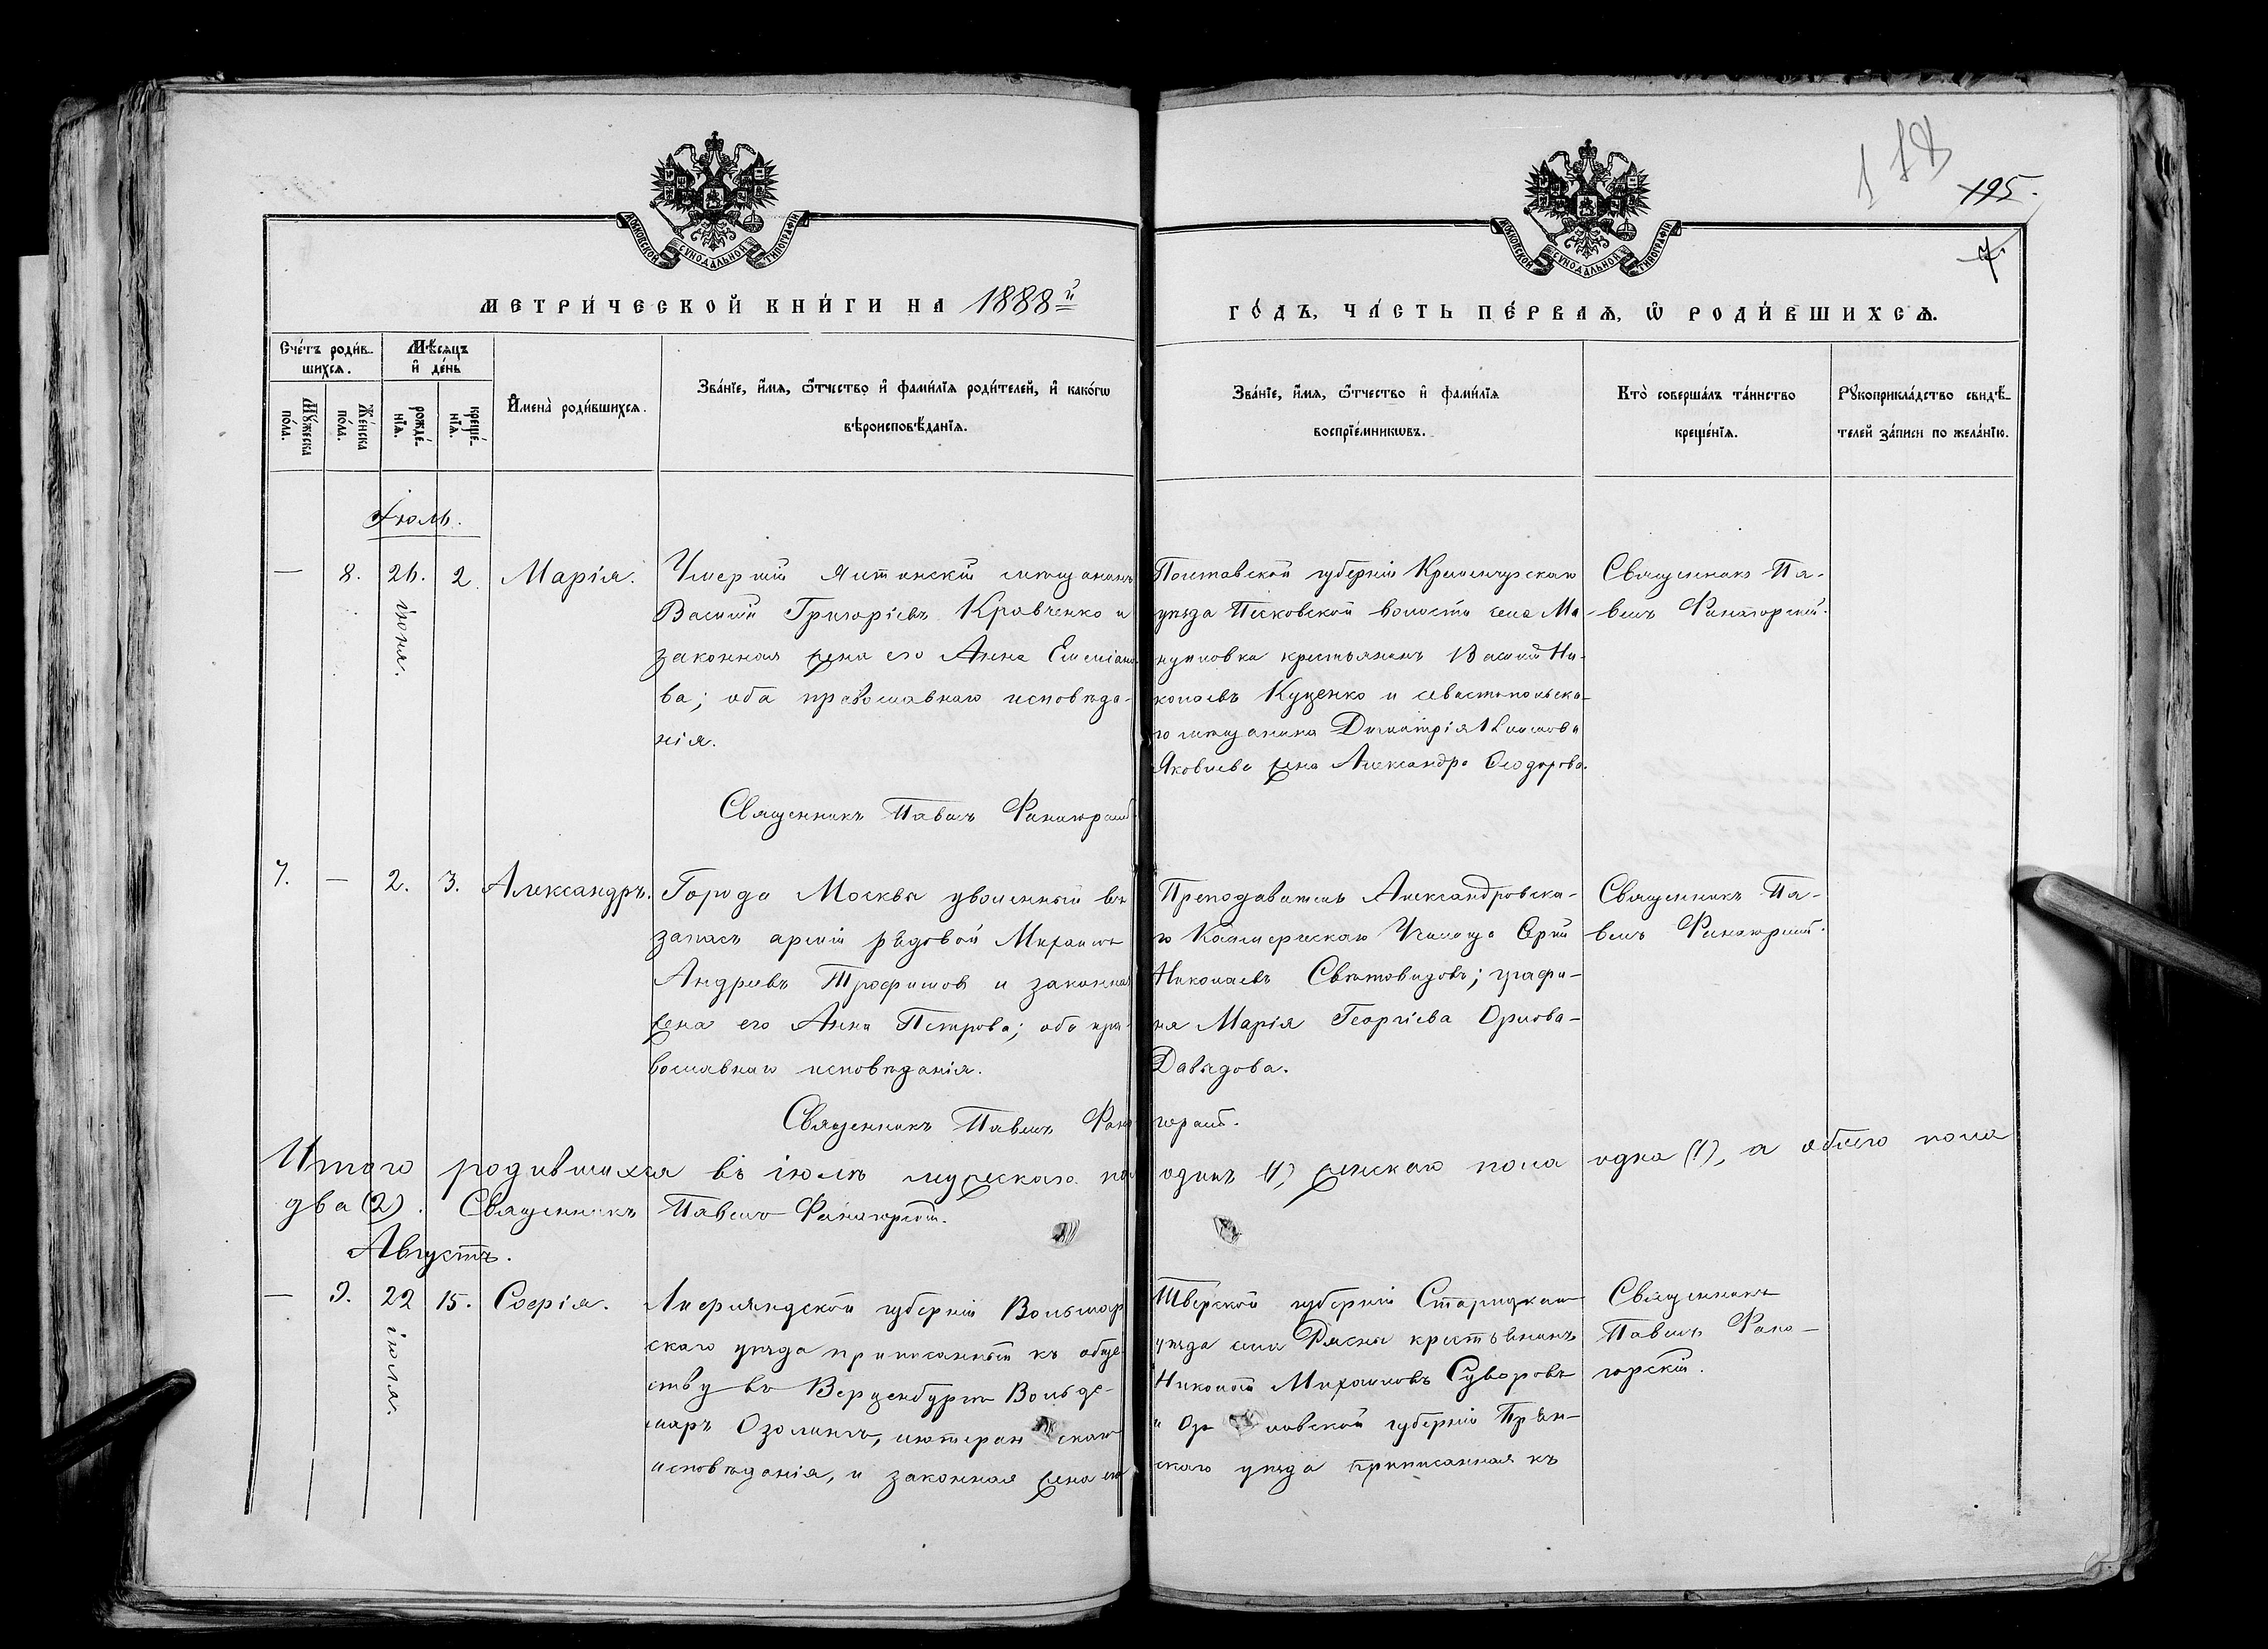 118
195.
7.
МОСКОВСКОЙ СУНОДАЛЬНОЙ ТИПОГРАФІИ
МОСКОВСКОЙ СУНОДАЛЬНОЙ ТИПОГРАФІИ
МЕТРИ́ЧЕСКОЙ КНИ́ГИ НА 1888й
ГО́ДЪ, ЧА́СТЬ ПЕ́РВАѦ, Ѽ РОДИ́ВШИХСѦ.
Сче́тъ роди́в-
шихсѧ.
Мꙋ́жеска по́ла.
Же́нска по́ла.
Мѣ́сѧцъ и҆ де́нь
рожде́-нїѧ.
креще́-нїѧ.
И҆мена̀ роди́вшихсѧ.
Зва́нїе, и҆́мѧ, ѻ҆́тчество и҆ фами́лїѧ роди́телей, и҆ како́гѡ
вѣроисповѣ́данїѧ.
Зва́нїе, и҆́мѧ, ѻ҆́тчество и҆ фами́лїѧ
воспрїе́мникѡвъ.
Кто̀ соверша́лъ та́инство
креще́нїѧ.
Рꙋкоприкла́дство свидѣ́-
телей за́писи по жела́нїю.
Іюль.
— 8. 26. іюня. 2. Марія.
Умершій Ялтинскій мѣщанинъ
Василій Григоріевъ Кравченко и
законная жена его Анна Емеліано-
ва; оба православнаго исповѣда-
нія.
Священникъ Павелъ Фанагорскій
Полтавской губерніи Кременчугскаго
уѣзда Песковской волости села Ма
нуиловка крестьянинъ Василій Ни-
колаевъ Куценко и севастопольска-
го мѣщанина Димитрія
Яковлева жена Александра Ѳеодорова.
Священникъ Па-
велъ Фанагорскій.
7. — 2. 3. Александръ.
Города Москвы уволенный въ
запасъ арміи рядовой Михаилъ
Андреевъ Трофимовъ и законная
жена его Анна Петрова; оба пра-
вославнаго исповѣданія.
Преподаватель Александровска-
го Коммерческаго Училища
Николаевъ Свѣтовидовъ; графи-
ня Марія Георгіева Орлова-
Давыдова.
Священникъ Па-
велъ Фанагорскій.
Священникъ Павелъ Фана горскій.
Итого родившихся въ іюлѣ мужескаго пола одинъ (1), женскаго пола одна (1), а обоего пола
два (2). Священникъ Павелъ Фанагорскій.
Августъ.
— 9. 22 іюля. 15. Софія.
Лифляндской губерніи Вольмар
скаго уѣзда приписанный къ обще-
ству въ Верценбургѣ Вольде-
маръ Озолингъ, лютеран скаго
исповѣданія, и законная жена его
Тверской губерніи Старицкаго
уѣзда села Рясны крестьянинъ
Николай Михаиловъ Суворовъ
и Ор ловской губерніи Брян-
скаго уѣзда приписанная къ
Священникъ
Павелъ Фана-
горскій.